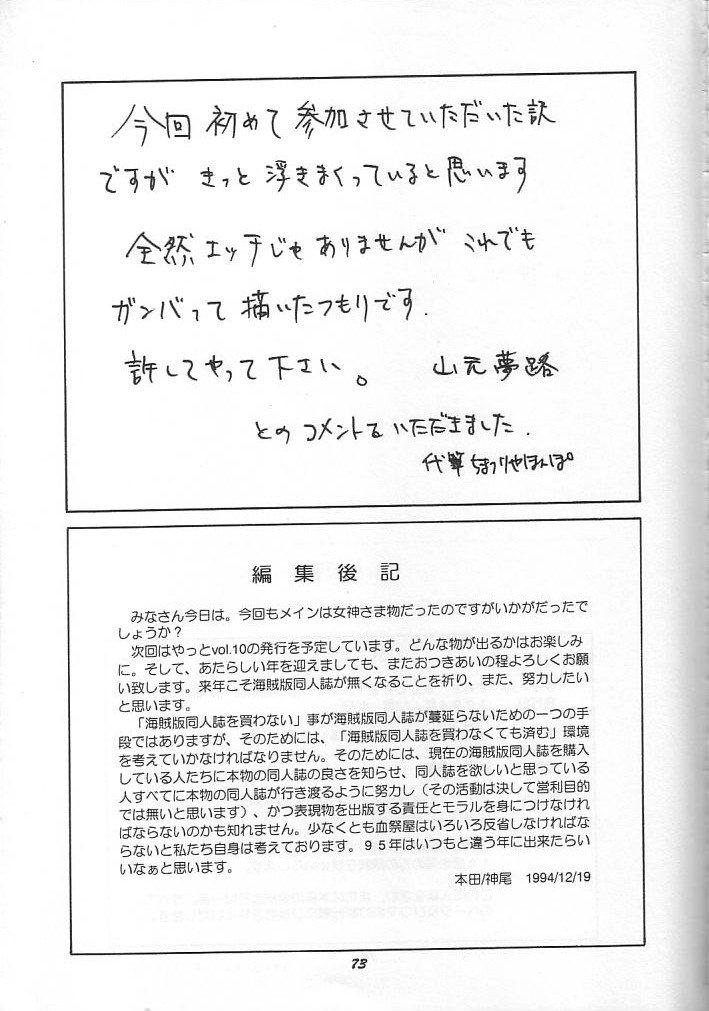 今回 初めて 参加させていただいた訳
ですが きっと 浮きまくっていると思います
全然 エッチじゃ ありませんが これでも
ガンバって 描いたつもりです.
許してやって 下さい。 山元夢路
との コメントを いただきました.
代筆 ちまつりやほんぽ
編集後記
みなさん今日は。今回もメインは女神さま物だったのですがいかがだったで
しょうか?
次回はやっとvol.10の発行を予定しています。どんな物が出るかはお楽しみ
に。そして、あたらしい年を迎えましても、またおつきあいの程よろしくお願
い致します。来年こそ海賊版同人誌が無くなることを祈り、また、努力したい
と思います。
「海賊版同人誌を買わない」事が海賊版同人誌が蔓延らないための一つの手
段ではありますが、そのためには、「海賊版同人誌を買わなくても済む」環境
を考えていかなければなりません。そのためには、現在の海賊版同人誌を購入
している人たちに本物の同人誌の良さを知らせ、同人誌を欲しいと思っている
人すべてに本物の同人誌が行き渡るように努力し(その活動は決して営利目的
では無いと思います)、かつ表現物を出版する責任とモラルを身につけなけれ
ばならないのかも知れません。少なくとも血祭屋はいろいろ反省しなければな
らないと私たち自身は考えております。95年はいつもと違う年に出来たらい
いなぁと思います。
本田/神尾 1994/12/19
73